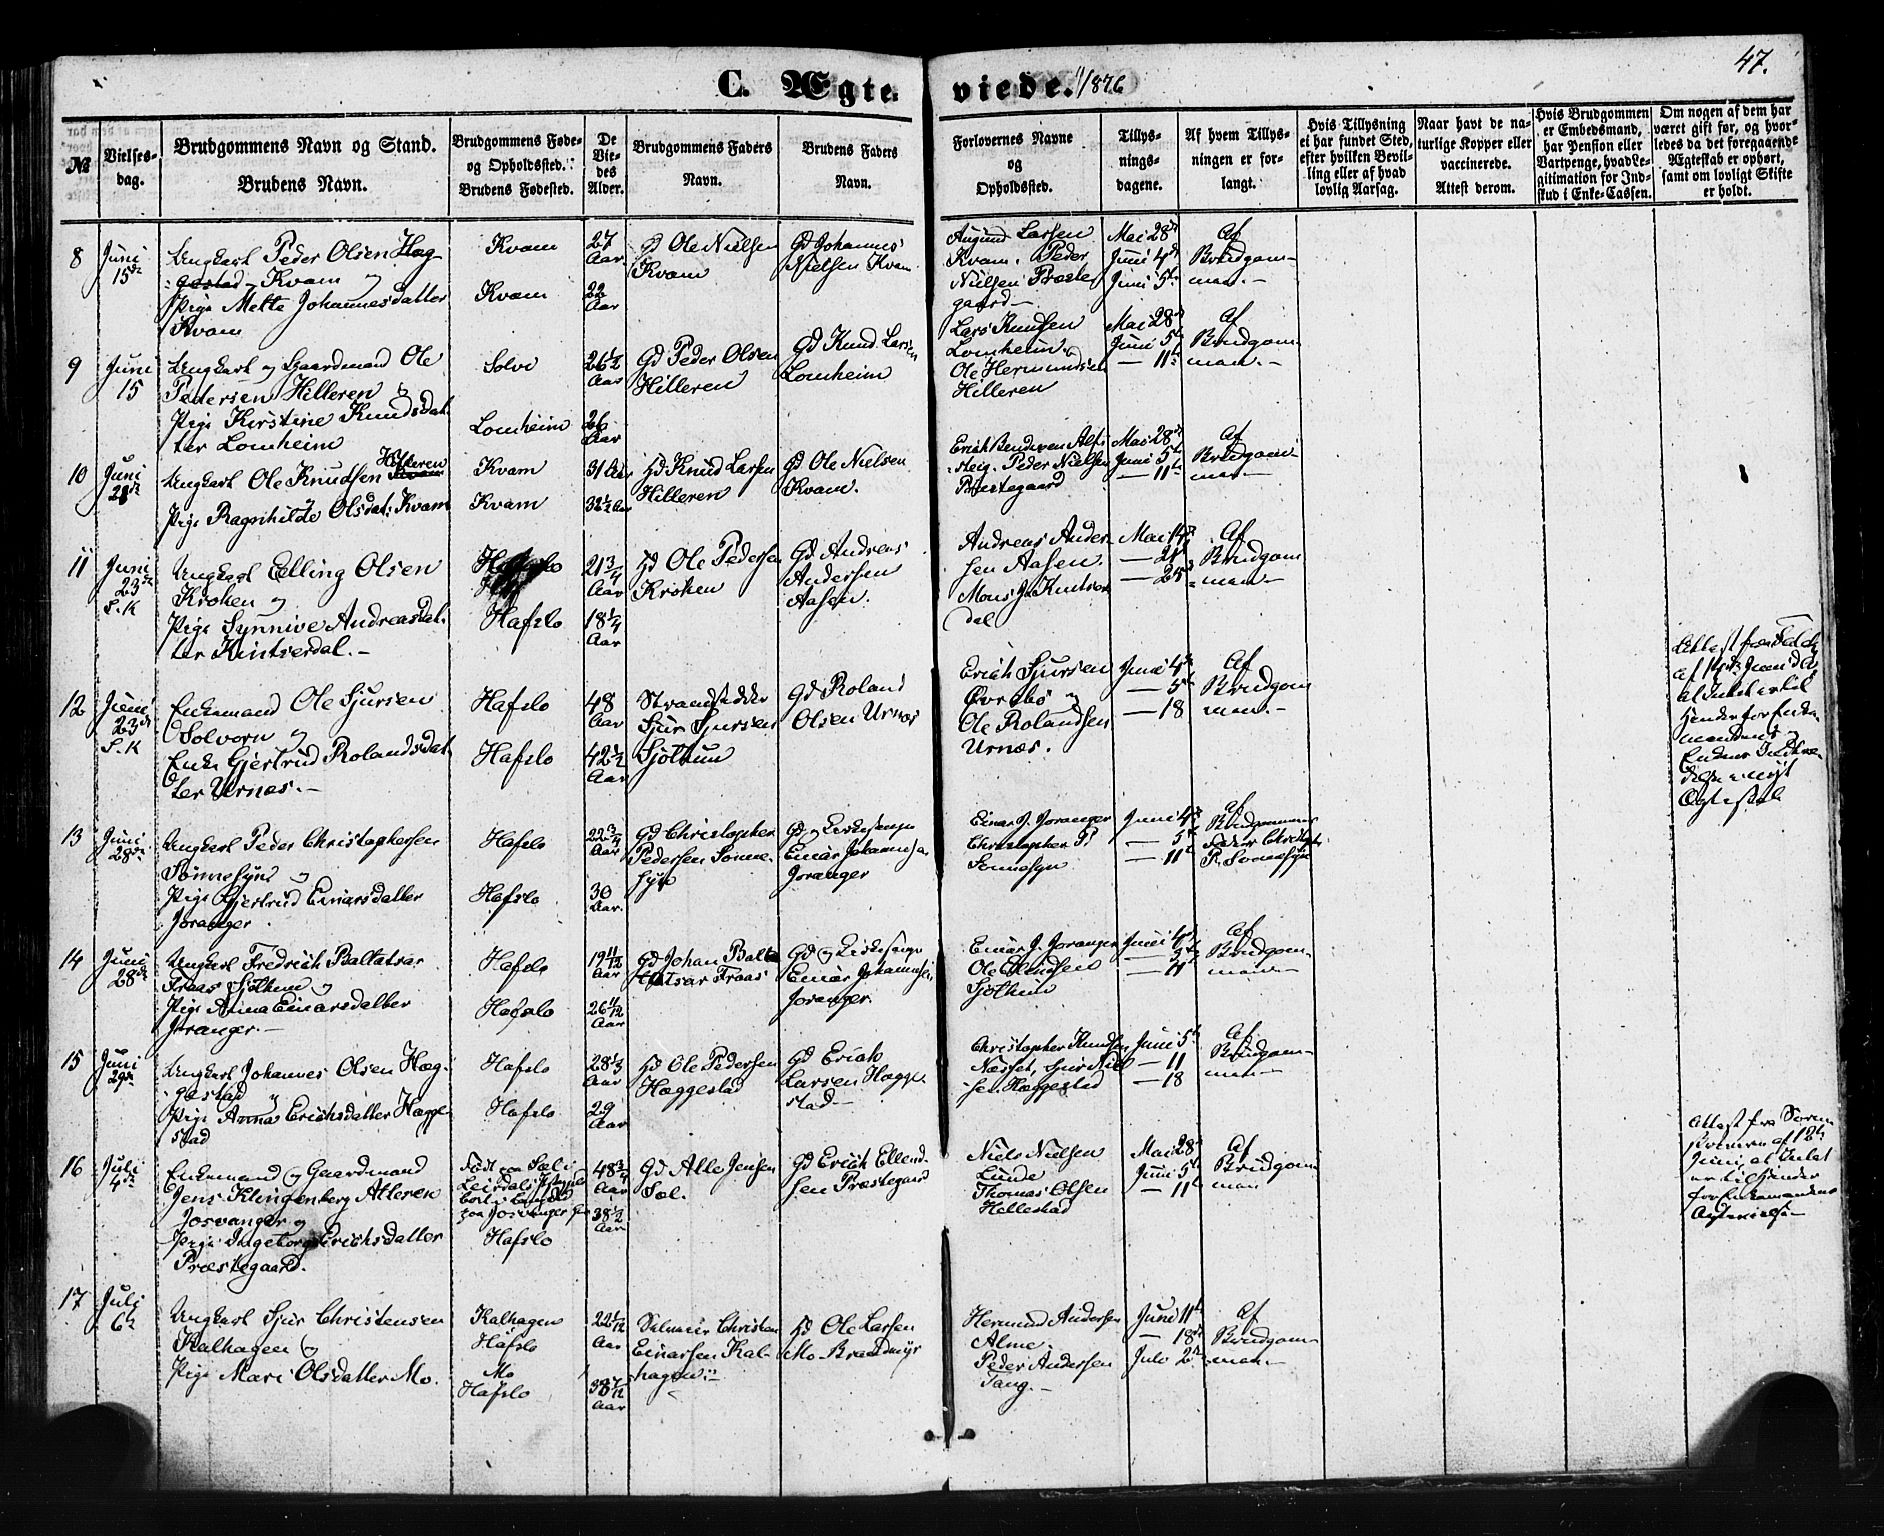 47.
C. Ægte viede. 1876
№
Vielses-
dag.
Brudgommens Navn og Stand.
Brudens Navn.
Brudgommens Føde-
og Opholdssted.
Brudens Fødested.
De
Vie-
des
Alder.
Brudgommens Faders
Navn.
Brudens Faders
Navn.
Forlovernes Navne
og
Opholdssted.
Tillys-
nings-
dagene.
Af hvem Tillys-
ningen er for-
langt.
Hvis Tillysning
ei har fundet Sted,
efter hvilken Bevil-
ling eller af hvad
lovlig Aarsag.
Naar havt de na-
turlige Kopper eller
vaccinerede.
Attest derom.
Hvis Brudgommen
er Embedsmand,
har Pension eller
Vartpenge, hvad Le-
gitimation for Ind-
skud i Enke-Cassen.
Om nogen af dem har
været gift før, og hvor-
ledes da det foregaaende
Ægteskab er ophørt,
samt om lovligt Skifte
er holdt.
8 Juni 15de
Ungkarl Peder Olsen Hæg-
gestad - Kvam og
Pige Mette Johannesdatter
Kvam
Kvam
Kvam
27 Aar
22 Aar
Gd Ole Nielsen
Kvam
Gd Johannes
Nielsen Kvam
Augund Larsen
Kvam. Peder
Nielsen Præste
gaard
Mai 28de
Juni 4de
Juni 5te
Af
Brudgom-
man.
9 Juni 15
Ungkarl og Gaardmand Ole
Pedersen Hilleren og
Pige Kirstine Knudsdat
ter Lomheim
Solvi
Lomheim
26½ Aar
26 Aar
Gd Peder Olsen
Hilleren
Gd Knud Larsen
Lomheim
Lars Knudsen
Lomheim og
Ole Hermundsen
Hilleren
Mai 28de
Juni 5te
— 11te
Af
Brudgom
man.
10 Juni 21de
Ungkarl Ole Knudsen Hilleren
Pige Ragnhilde Olsdat: Kvam
Kvam
Kvam
31 Aar
32½ Aar
Gd Knud Larsen
Hilleren
Gd Ole Nielsen
Kvam.
Peder Nielsen
Præstegaard
Mai 28de
Juni 5te
— 11te
Af
Brudgom
man
11 Juni 23de S.K
Ungkarl Elling Olsen
Kroken og
Pige Synnive Andreasdat-
ter Kintserdal.
Hafslo
Hafslo
21¾ Aar
18¼ Aar
Hd Ole Pedersen
Kroken
Gd Andreas
Andersen
Aasen.
Andreas Ander
sen Aasen.
Mons J. Kintser
dal
Mai 14de
— 21de
— 25de
Af
Brudgom
man.
12 Juni 23de S.K
Enkemand Ole Sjursen
Solvorn og
Enke Gjertrud Rolandsdat
ter Urnæs.
Hafslo
Hafslo
48 Aar
42½ Aar
Strandsidder
Sjur Sjursen
Sjøthun
Gd Roland
Olsen Urnæs
Erich Sjursen
Øvrebø og
Ole Rolandsen
Urnæs.
Juni 4de
— 5te
— 18
Af
Brudgom
man.
Ægteskab
13 Juni 28de
Ungkarl Peder Christophersen
Sønnesyn og
Pige Gjertrud Einarsdatter
Joranger.
Hafslo
Hafslo
22¾ Aar
30 Aar.
Gd Christopher
Pedersen Sønne-
syn
Gd og Kirkesanger
Einar Johannesen
Joranger
Einar J. Joranger
Christopher P.
Sønnesyn
Juni 4de
— 5te
— 11te
af
Brudgommens
Fader Christoph
P. Sønnesyn
14 Juni 28de
Ungkarl Fredrich Baltatsar
Fraas Sjøthun og
Pige Anna Einarsdatter
Joranger.
Hafslo
Hafslo
19 11/12 Aar
26 11/12 Aar
Gd Johan Balta
tsar Fraas
Gd og Kirkesanger
Einar Johannesen
Joranger
Einar J. Joranger
Ole Elendsen
Sjøthun
Juni 4de
— 5te
— 11
Af
Brudgom-
man
15 Juni 29de
Ungkarl Johannes Olsen Hæg-
gestad og
Pige Anna Erichsdatter Hægge
stad
Hafslo
Hafslo
28⅓ Aar
29 Aar
Hd Ole Pedersen
Hæggestad
Gd Erich
Larsen Hægge
stad
Christopher Knudsen
Næsset, Sjur Niel
sen Hæggestad
Juni 5te
— 11
— 18
Af
Brudgom-
man
16 Juli 4de
Enkemand og Gaardmand
Jens Klingenberg Atleren
Josvanger og
Pige Ingeborg Erichsdatter
Præstegaard.
Født paa Sæl i
Hafslo
48¾ Aar
38½ Aar
Gd Atle Jensen
Sæl.
Gd Erich Ellend
sen Præstegaard
Niels Nielsen
Lunde
Thomas Olsen
Hellestad
Mai 28de
Juni 5te
— 11te
Af
Brudgom
man
17 Juli 6te
Ungkarl Sjur Christensen
Kalhagen og
Pige Mari Olsdatter Mo.
Kalhagen
Hafslo
Mo
Hafslo
22 1/12 Aar
38 7/12 Aar
Selveier Christen
Einarsen Kal-
hagen
Hd Ole Larsen
Mo Brandmyr
Hermund Andersen
Alme.
Peder Andersen
Tang.
Juni 11te
— 18de
Juli 2de
Af
Brudgom-
man.